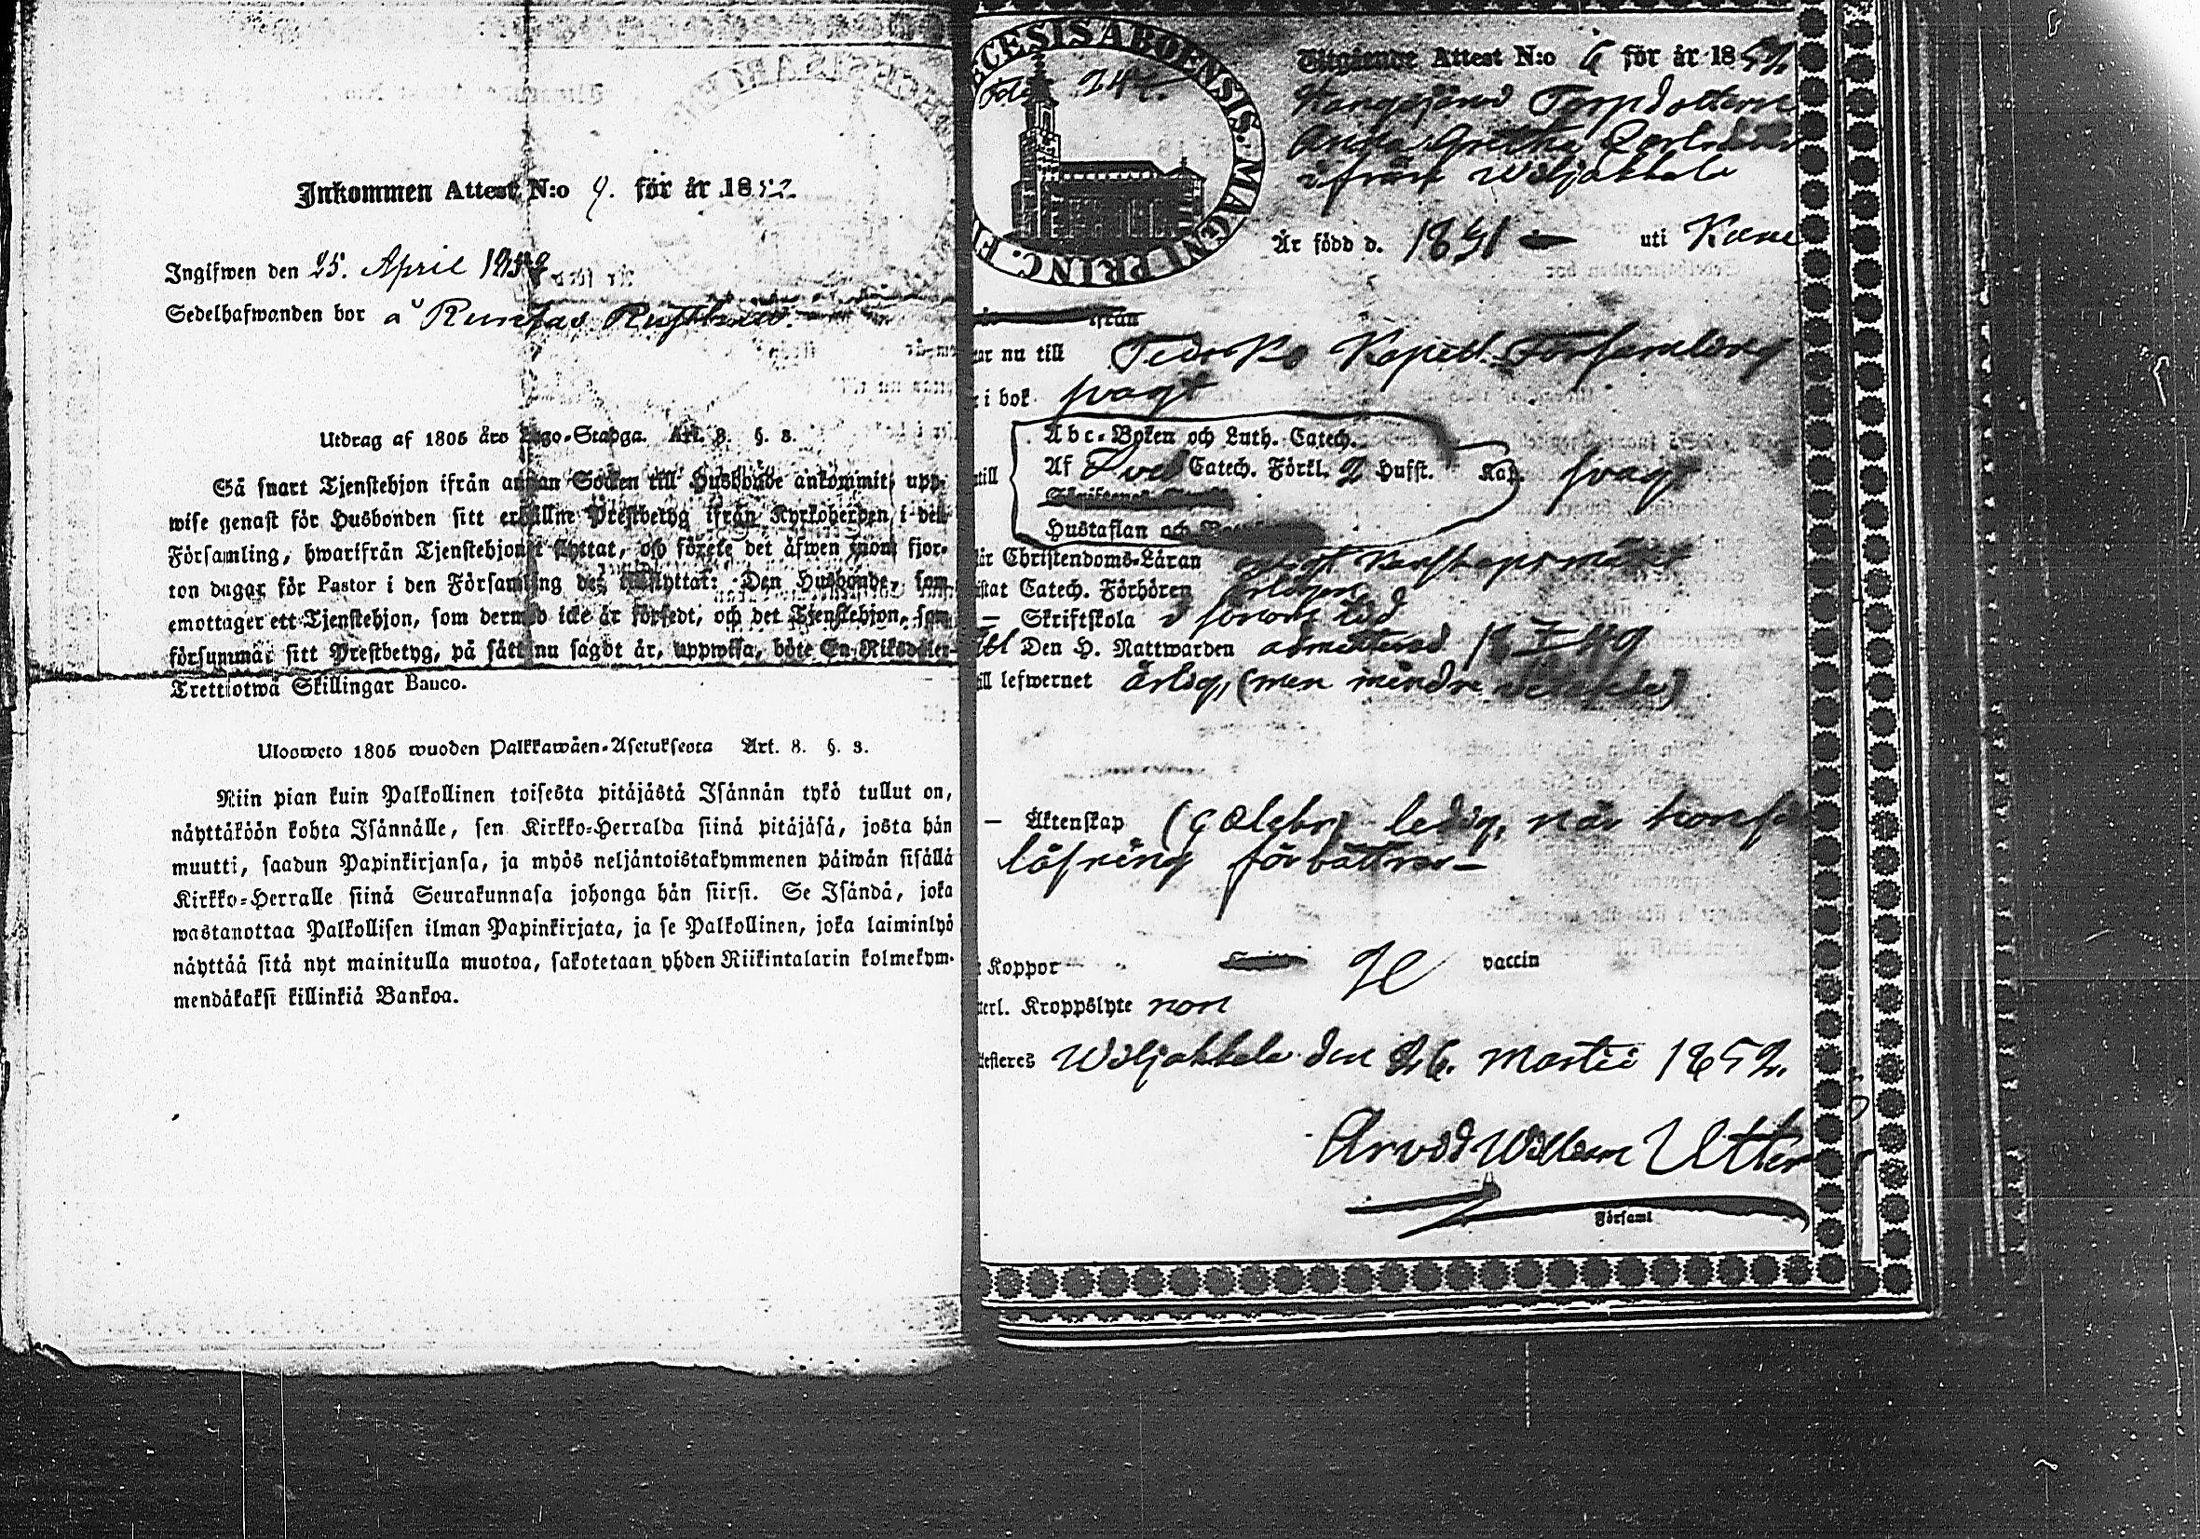 Inkommen Attest N:o 9. för år 1852.
Ingifwen den 25. April 1852
Sedelhafwanden bor å
Utdrag af 1805 års Lego-Stadga. Art. 8. §. 3.
Så snart Tjenstehjon ifrån annan Socken till Husbonde ankommit, upp-
wise genast för Husbonden sitt erhållne Prestbetyg ifrån Kyrkoherden i den
Församling, hwarifrån Tjenstehjonet flyttat, och förete det äfwen inom fjor-
ton dagar för Pastor i den Församling det inflyttat: Den Husbonde, som
emottager ett Tjenstehjon, som dermed icke är försedt, och det Tjenstehjon, som
försummar sitt Prestbetyg, på sätt nu sagdt är, uppwisa, böte En Riksdaler
Trettiotwå Skillingar Banco.
Ulosweto 1805 wuoden Palkkawäen-Asetuksesta Art. 8. §. 3.
Niin pian kuin Palkollinen toisesta pitäjästä Isännän tykö tullut on,
näyttäköön kohta Isännälle, sen Kirkko-Herralda siinä pitäjäsä, josta hän
muutti, saadun Papinkirjansa, ja myös neljäntoistakymmenen päiwän sisällä
Kirkko-Herralle siinä Seurakunnasa johonga hän siirsi. Se Isändä, joka
wastanottaa Palkollisen ilman Papinkirjata, ja se Palkollinen, joka laiminlyö
näyttää sitä nyt mainitulla muotoa, sakotetaan yhden Riikintalarin kolmekym-
mendäkaksi killinkiä Bankoa.
ECESIS ABOENSIS. MAGNI PRINC. F
Utgående Attest N:o 6 för år 1852
Torpdottern
Anna Greta
ifrån Wiljakkala
Är född d. 1831 — uti
ifrån
ar nu till Kapell Församling
i bok svagt
Abc-Boken och Luth. Catech.
till Af Catech. Förkl. 2 Hufst. Kap. svagt
Hustaflan och
är Christendoms-Läran
istat Catech. Förhören
— Skriftskola i förra tid
till Den H. Nattwarden admitterad 18 49
ill lefwernet ärlig, (men mindre
— Äktenskap ledig, när
läsning förbättrar —
Koppor vaccin
erl. Kroppslyte non
testeres Wiljakkala den 26. Martii 1852.
Arvid Willem
Församl